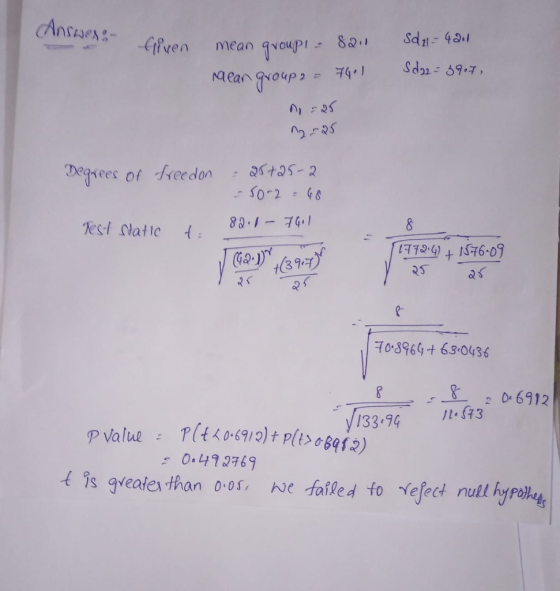 Answer:-
Given mean group1 = 82.1 Sd21 = 42.1
Mean group2 = 74.1 Sd22 = 39.7,
n1 = 25
n2 = 25
Degrees of freedon = 25+25-2
= 50-2 = 48
Test Static t = (82.1 - 74.1) / √((42.1)²/25 + (39.7)²/25) = 8 / √(1772.41/25 + 1576.09/25)
= 8 / √(70.8964 + 63.0436)
= 8 / √133.94 = 8 / 11.573 = 0.6912
P Value = P(t<0.6912) + P(t>0.6912)
= 0.492769
t is greater than 0.05, we failed to reject null hypothesis